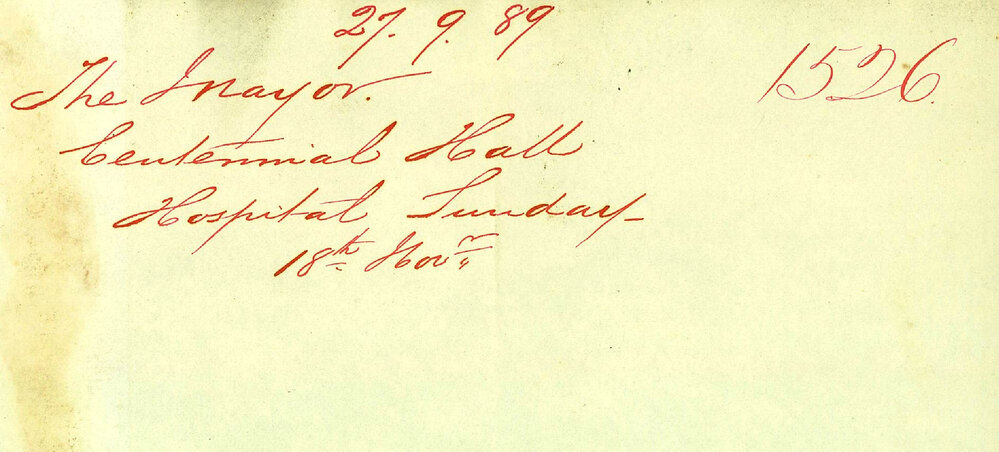 27. 9. 89
1526.
The Mayor.
Centennial Hall
Hospital Sunday
18th Novr